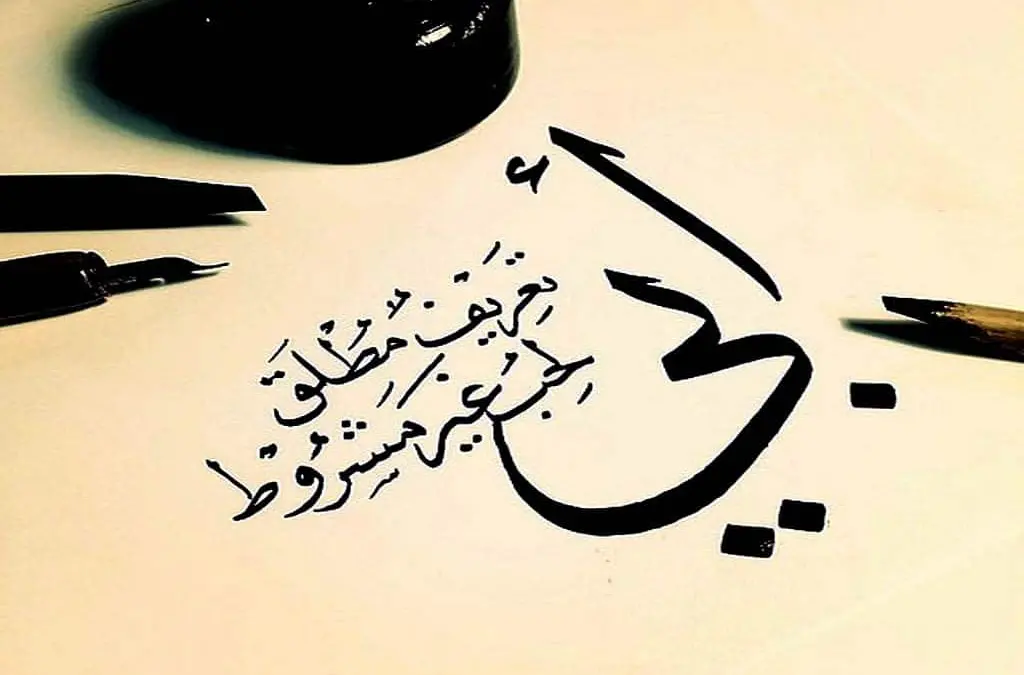 أبي
تَعرِيف مُطْلَق
لِحُب غير مَشرُوط